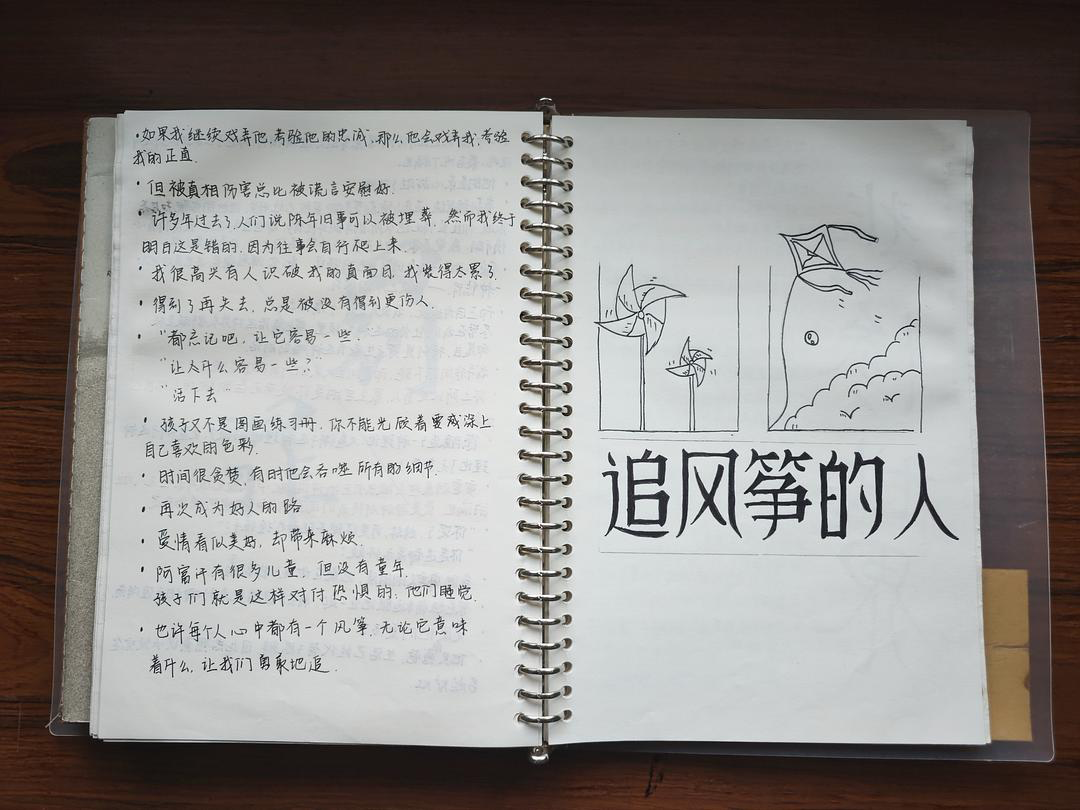 ·如果我继续戏弄他,考验他的忠诚,那么他会戏弄我,考验
我的正直.
·但被真相伤害总比被谎言安慰好.
·许多年过去了,人们说陈年旧事可以被埋葬,然而我终于
明白这是错的,因为往事会自行爬上来.
·我很高兴有人识破我的真面目,我装得太累了
·得到了再失去,总是被没有得到更伤人.
·"都忘记吧,让它容易一些.
"让什么容易一些?"
"活下去"
·孩子又不是图画练习册,你不能光顾着要或涂上
自己喜欢的色彩.
·时间很贪婪,有时他会吞噬所有的细节.
·再次成为好人的路
·爱情看似美好,却带来麻烦.
·阿富汗有很多儿童,但没有童年.
孩子们就是这样对付恐惧的:他们睡觉.
·也许每个人心中都有一个风筝,无论它意味
着什么,让我们勇敢地追.
追风筝的人